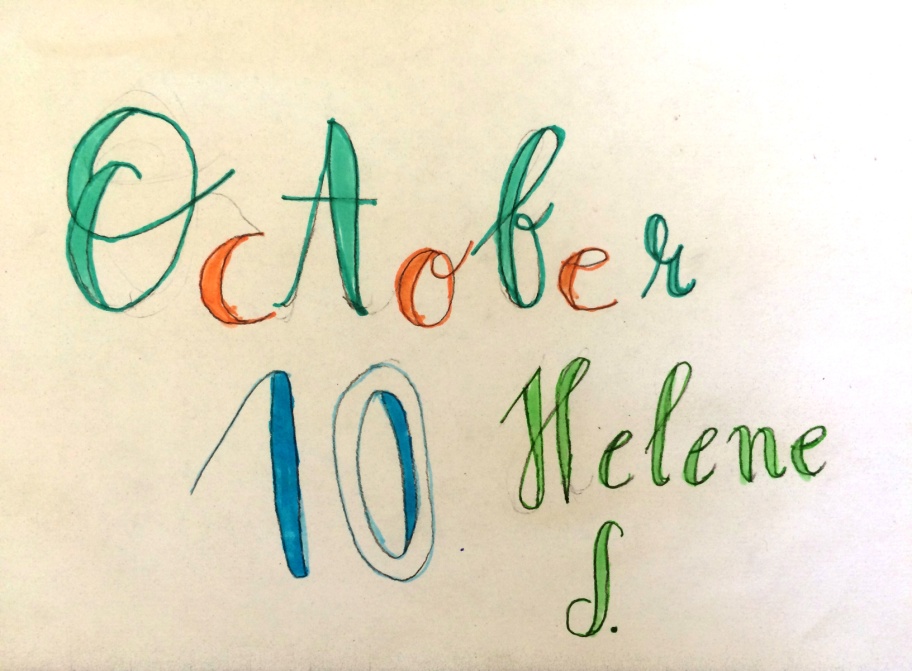 OcAober
10 Helene
S.